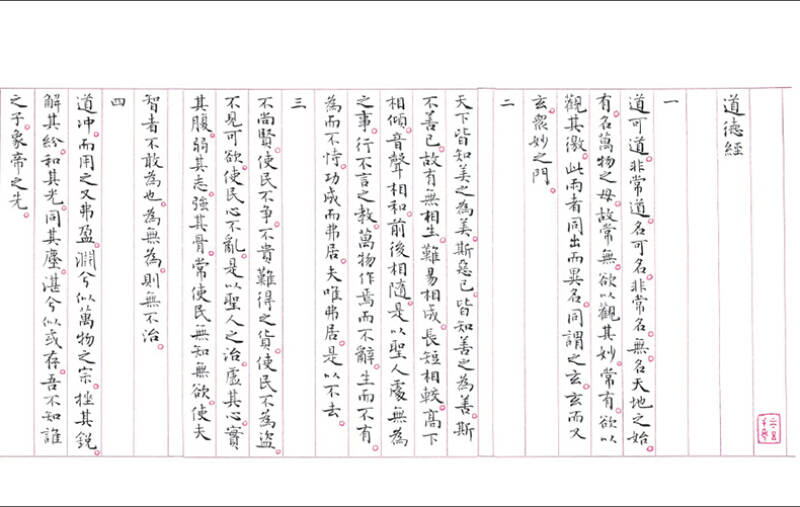 道德經
一
道可道。非常道。名可名。非常名。無名天地之始。
有名萬物之母。故常無。欲以觀其妙。常有。欲以
觀其徼。此兩者同出而異名。同謂之玄。玄而又
玄。眾妙之門。
二
天下皆知美之為美。斯惡已。皆知善之為善。斯
不善已。故有無相生。難易相成。長短相較。高下
相傾。音聲相和。前後相隨。是以聖人處無為
之事。行不言之教。萬物作焉而不辭。生而不有。
為而不恃。功成而弗居。夫唯弗居。是以不去。
三
不尚賢。使民不爭。不貴難得之貨。使民不為盜。
不見可欲。使民心不亂。是以聖人之治。虛其心。實
其腹。弱其志。強其骨。常使民無知無欲。使夫
智者不敢為也。為無為。則無不治。
四
道冲而用之又弗盈。淵兮似萬物之宗。挫其銳。
解其紛。和其光。同其塵。湛兮似或存。吾不知誰
之子。象帝之先。